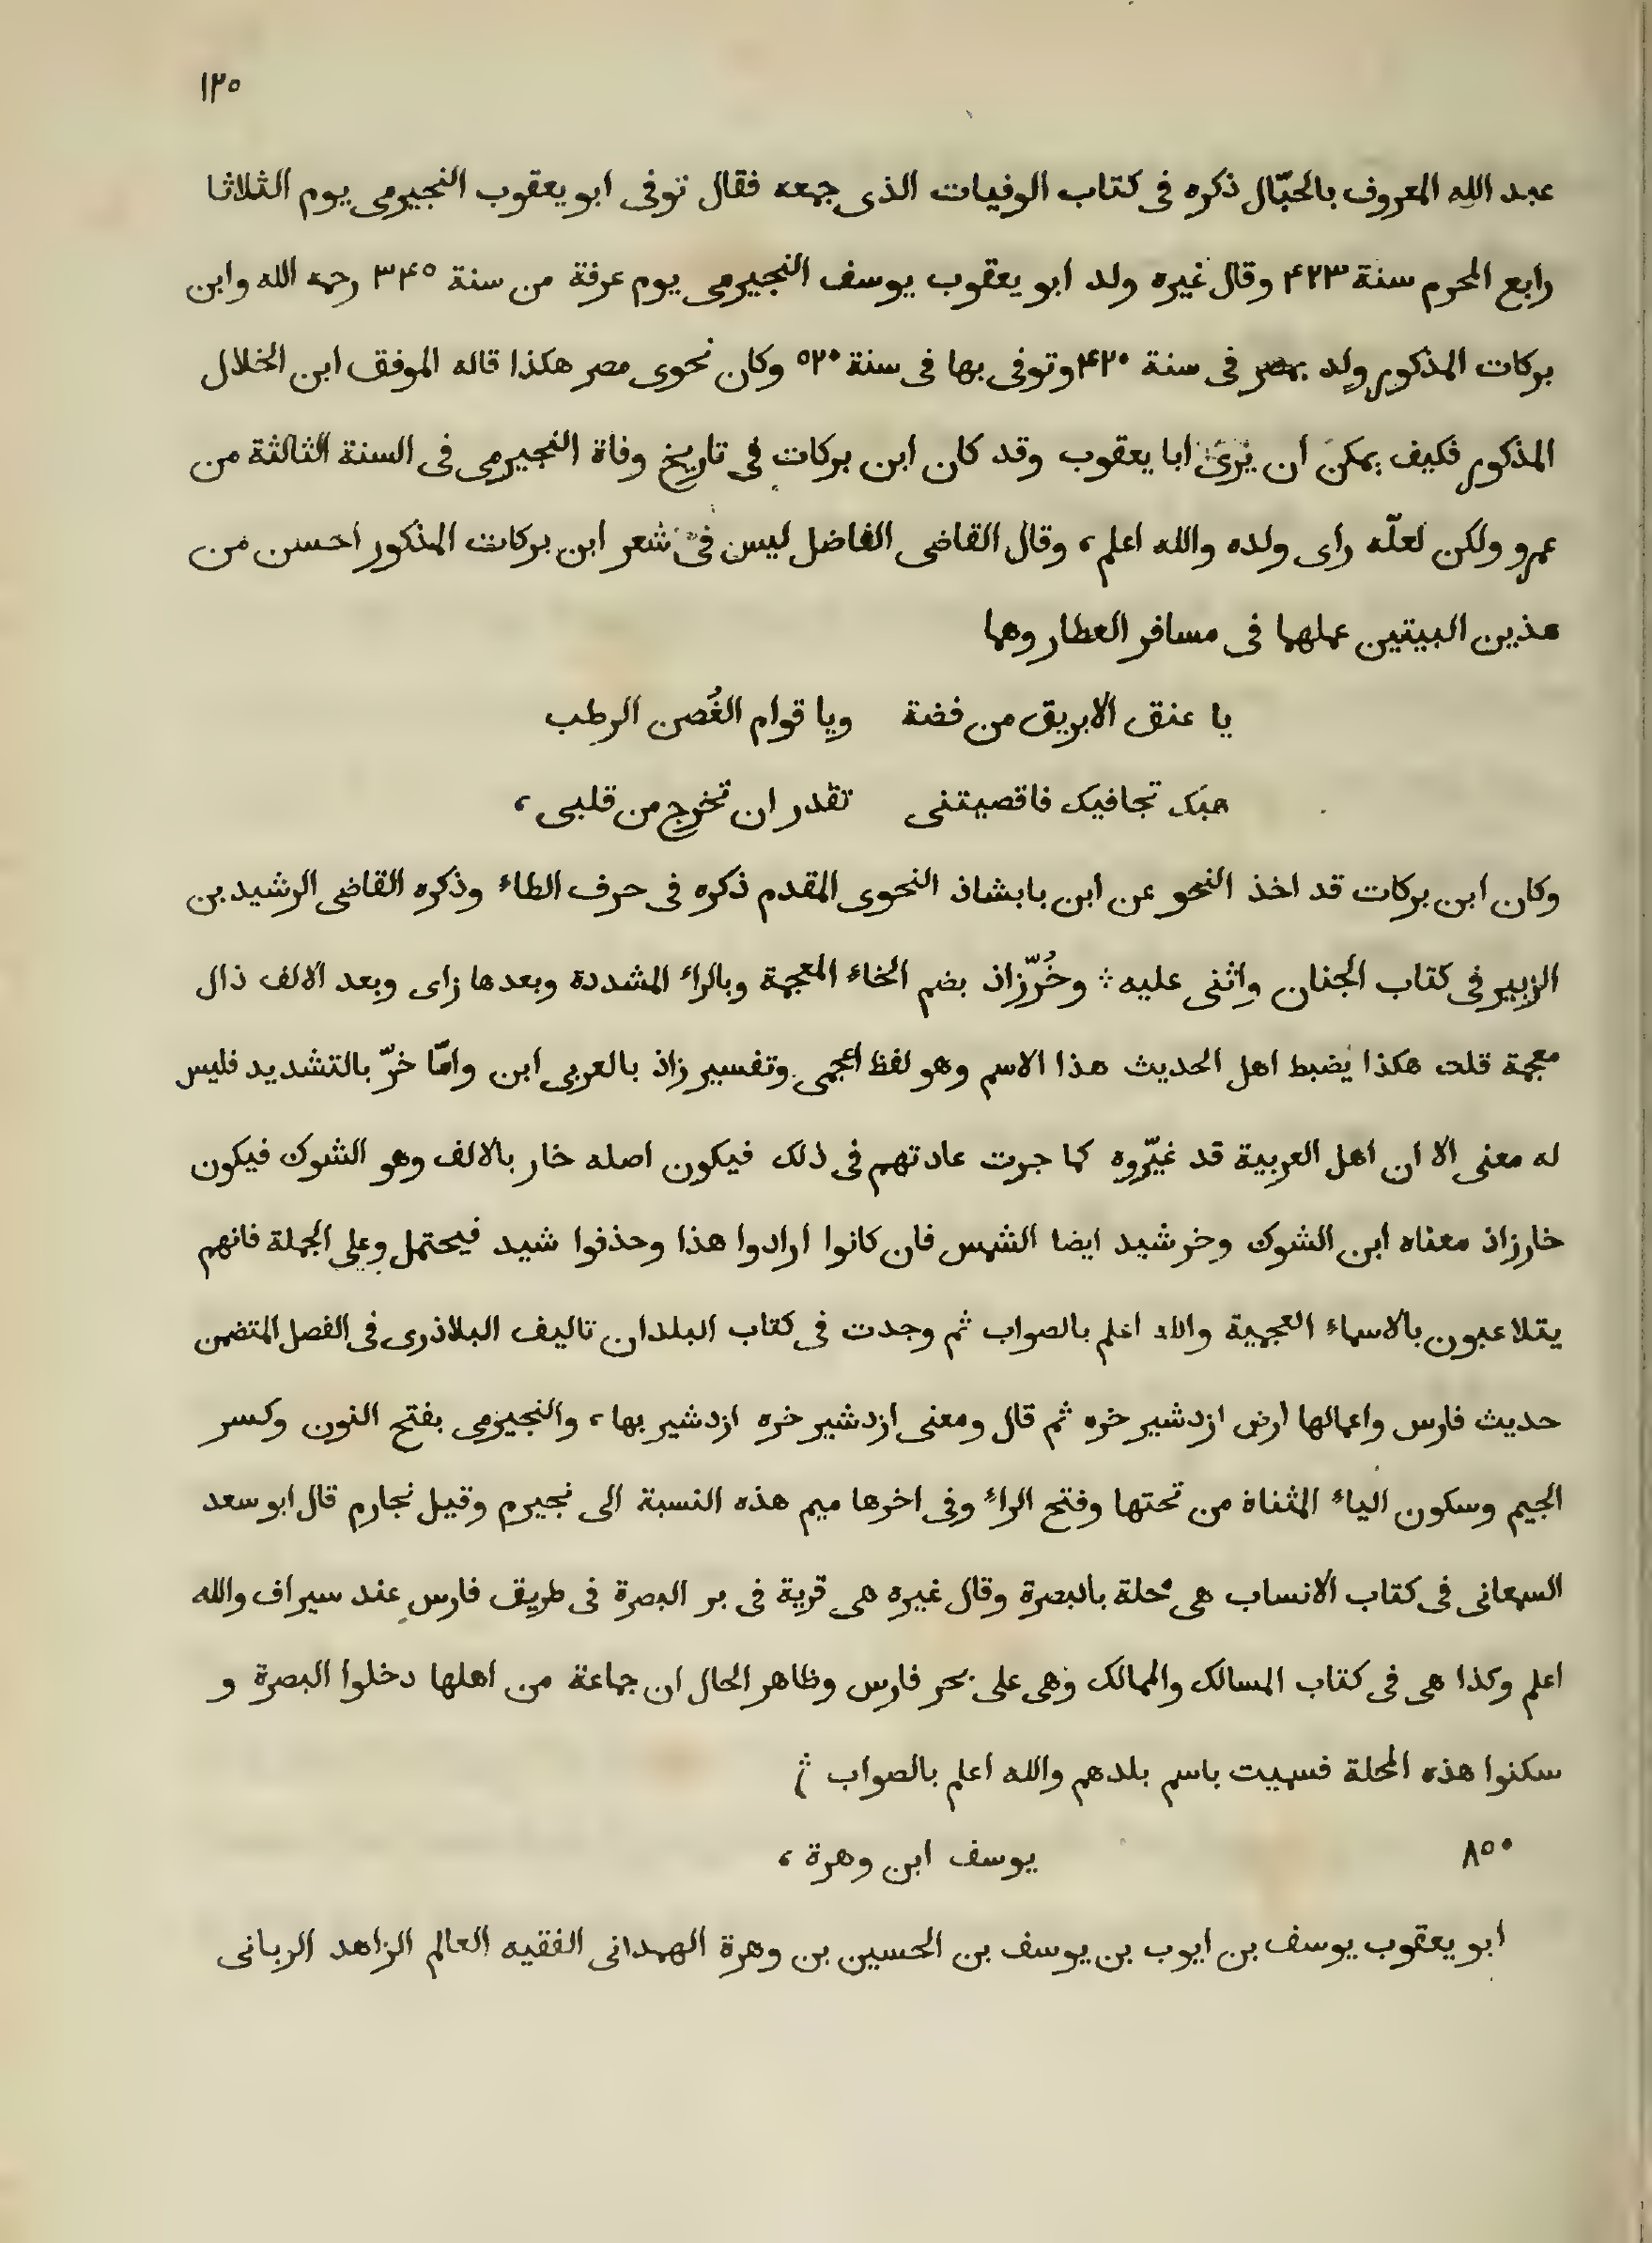 ١٢٥
عبد الله المعروف بالحبّال ذكره فى كتاب الوفيات الذى جمعه فقال توفى ابو يعقوب النجيرمى يوم الثلاثا
رابع المحرم سنة ٤٢٣ وقال غيره ولد ابو يعقوب يوسف النجيرمى يوم عرفة من سنة ٣٤٥ رحمه الله وابن
بركات المذكور ولد بمصر فى سنة ٤٢٠ وتوفى بها فى سنة ٥٢٠ وكان نحوى مصر هكذا قاله الموفق ابن الخلال
المذكور فكيف يمكن ان يرى ابا يعقوب وقد كان ابن بركات فى تاريخ وفاة النجيرمى فى السنة الثالثة من
عمرو ولكن لعلّه راى ولده والله اعلم، وقال القاضى الفاضل ليس فى شعر ابن بركات المذكور احسن من
هذين البيتين عملهما فى مسافر العطار وهما
يا عنق الابريق من فضة ويا قوام الغُصن الرطب
هبك تجافيك فاقصيتنى تقدر ان تخرج من قلبى،
وكان ابن بركات قد اخذ النحو عن ابن بابشاذ النحوى المقدم ذكره فى حرف الطاء وذكره القاضى الرشيد بن
الزبير فى كتاب الجنان واثنى عليه ⁘ وخُرّزاذ بضم الخاء المعجمة وبالراء المشددة وبعدها زاى وبعد الالف ذال
معجمة قلت هكذا يضبط اهل الحديث هذا الاسم وهو لفظ اعجمى وتفسير زاذ بالعربى ابن وامّا خرّ بالتشديد فليس
له معنى الا ان اهل العربية قد غيّروه كما جرت عادتهم فى ذلك فيكون اصله خار بالالف وهو الشوك فيكون
خارزاذ معناه ابن الشوك وخرشيد ايضا الشمس فان كانوا ارادوا هذا وحذفوا شيد فيحتمل وعلى الجملة فانهم
يتلاعبون بالاسماء العجمية والله اعلم بالصواب ثم وجدت فى كتاب البلدان تاليف البلاذرى فى الفصل المتضمن
حديث فارس واعمالها ارض ازدشير خره ثم قال ومعنى ازدشير خره ازدشير بها، والنجيرمى بفتح النون وكسر
الجيم وسكون الياء المثناة من تحتها وفتح الراء وفى اخرها ميم هذه النسبة الى نجيرم وقيل نجارم قال ابو سعد
السمعانى فى كتاب الانساب هى محلة بالبصرة وقال غيره هى قرية فى بر البصرة فى طريق فارس عند سيراف والله
اعلم وكذا هى فى كتاب المسالك والممالك وهى على بحر فارس وظاهر الحال ان جماعة من اهلها دخلوا البصرة و
سكنوا هذه المحلة فسميت باسم بلدهم والله اعلم بالصواب
٨٥٠ يوسف ابن وهرة،
ابو يعقوب يوسف بن ايوب بن يوسف بن الحسين بن وهرة الهمدانى الفقيه العالم الزاهد الربانى